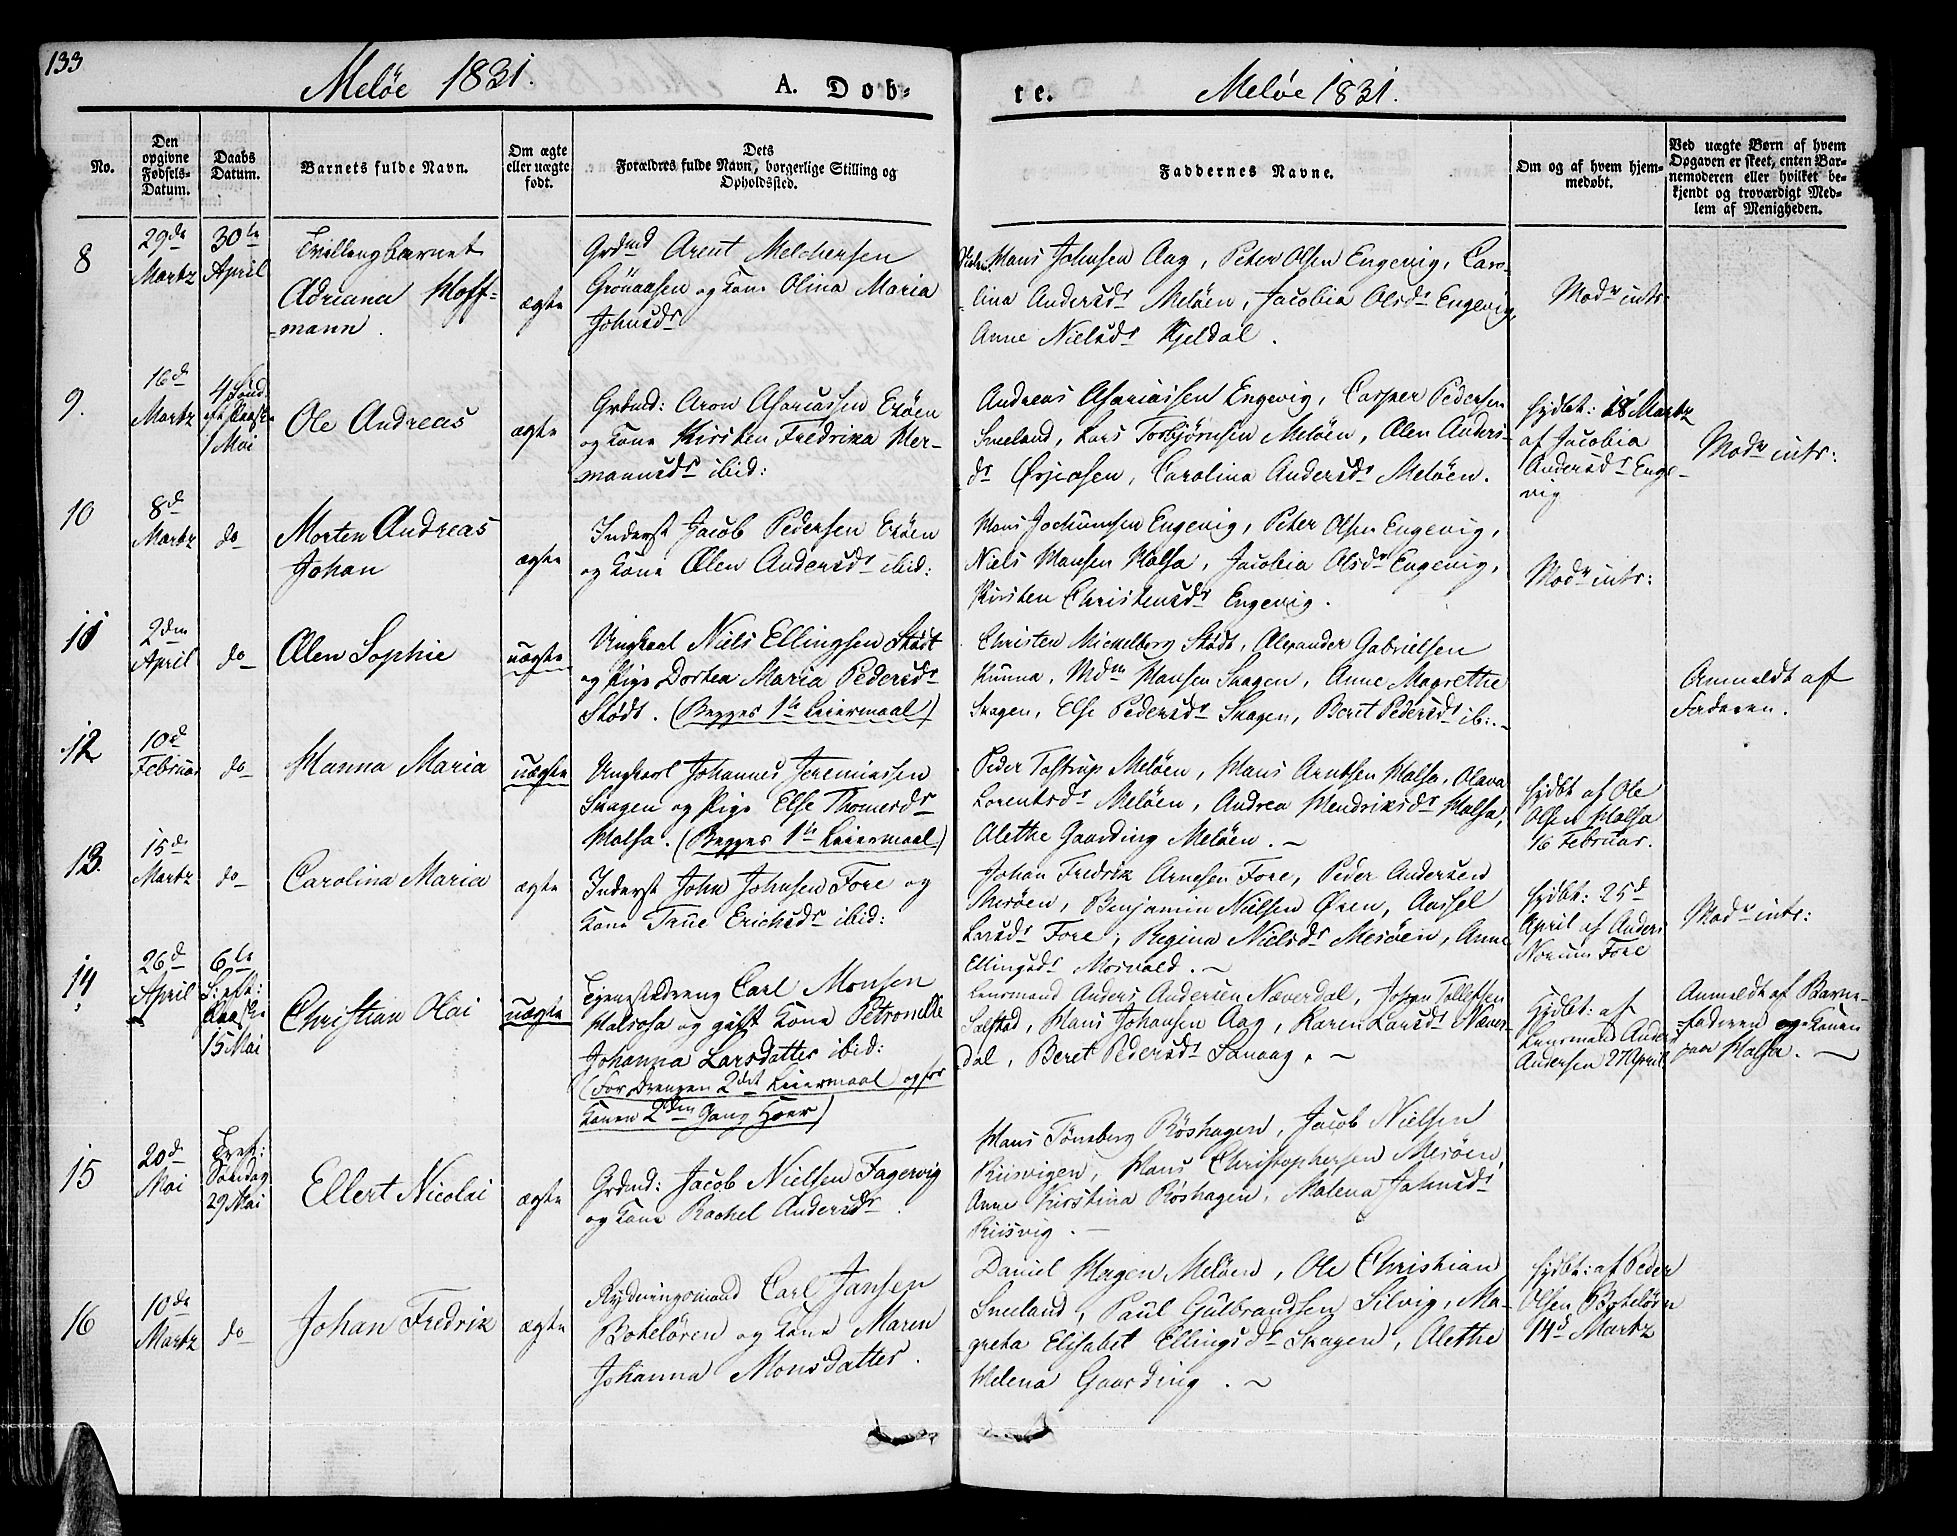 133
Meløe 1831.
A. Dob-
te.
Meløe 1831.
No.
Den opgivne Fødsels-Datum.
Daabs Datum.
Barnets fulde Navn.
Om ægte eller uægte født.
Dets Forældres fulde Navn, borgerlige Stilling og Opholdssted.
Faddernes Navne.
Om og af hvem hjem-medøbt.
Ved uægte Børn af hvem Opgaven er skeet, enten Bar-nemoderen eller hvilket be-kjendt og troværdigt Med-lem af Menigheden.
8
29de
Martz
30te
April
Tvillingbarnet
Adriana Hoff-
-mann.
ægte
Grdmd Arent Melchersen
Grönaasen og Kone Olina Maria
Johnsdr
Hans Johnsen Aag, Peter Olsen Engevig, Caro-
lina Andersdr Meløen, Jacobia Olsdr Engevig,
Anne Nielsdr Kjeldal.
Modr intr:
9.
16d
Martz
4 Sönd.
eft. Paaske
1 Mai
Ole Andreas
ægte
Grdmd: Aron Asariassen Eröen
og Kone Kirsten Fredrika Her-
mannsdr ibid:
Andreas Asariassen Engevig, Casper Pedersen
Smeland, Lars Torbjørnsen Meløen, Olen Anders-
dr Ørjeosen, Carolina Andersdr Meløen.
hjdbt: 18 Martz
af Jacobia
Andersdr Enge-
vig
Modr intr:
10
8d
Martz
do
Morten Andreas
Johan
ægte
Inderst Jacob Pedersen Eröen
og Kone Olen Andersdr ibid:
Hans Jochumsen Engevig, Peter Olsen Engevig,
Niels Hansen Halsa, Jacobia Olsdr Engevig,
Kirsten Christensdr Engevig.
Modr intr:
11
2den
April
do
Olen Sophie
uægte
Ungkarl Niels Ellingsen Stöst
og Pige Dorthea Maria Pedersdr
Stödt. (Begges 1te Leiermaal)
Christen Mickelborg Stödt, Alexander Gabrielsen
Kunna, Mdm Hansen Skagen, Anne Magrethe
Skagen, Else Pedersdr Skagen, Beret Pedersdr ib:
Anmeldt af
Faderen.
12
10d
Februar
do
Hanna Maria
uægte
Ungkarl Johannes Jeremiassen
Skagen og Pige Else Thomesdr
Halsa. (Begges 1te Leiermaal)
Peder Tostrup Meløen, Hans Arntsen Halsa, Olava
Lorentsdr Meløen, Andrea Hendriksdr Halsa,
Alethe Gaarding Meløen.
hjdbt af Ole
Olsen Halsa
16 Februar.
13.
15de
Martz
do
Carolina Maria
ægte
Inderst John Johnsen Fore og
Kone True Erichsdr ibid:
Johan Fredrik Arnesen Fore, Peder Andersen
Mesöen, Benjamin Nielsen Ören, Aassel
Larsdr Fore, Regina Nielsdr Mesöen, Anne
Ellingsdr Mosvold.
hjdbt: 25d
April af Anders
Norum Fore
Modr intr:
14
26d
April
6te
S: eft:
Paaske
15 Mai
Christian Olai
uægte
Tjenestedreng Carl Monsen
Halsosa og gift Kone Petronelle
Johanna Larsdatter ibid:
(For Drengen 2det Leiermaal og for
Konen 2den Gang Hoer)
Lensmand Anders Andersen Næverdal, Johan Tollefsen
Selstad, Hans Johansen Aag, Karen Larsdr Næver-
dal, Beret Pedersdr Sanaag.
hjdbt: af
Lensmand Anders
Andersen 27 April
Anmeldt af Barne-
faderen og Konen
paa Halsa.
15
20de
Mai
Tref:
Søndag
29 Mai
Ellert Nicolai
ægte
Grdmd: Jacob Nielsen Fagervig
og Kone Rachel Andersdr.
Hans Tönsberg Röshagen, Jacob Nielsen
Riisvigen, Hans Christophersen Mesöen,
Anne Kirstina Röshagen, Malena Johnsdr
Riisvig.
16
10de
Martz
do
Johan Fredrik
ægte
Rydningsmand Carl Jansen
Bokelören og Kone Maren
Johanna Monsdatter.
Daniel Hagen Meløen, Ole Christian
Smeland, Paul Gulbrandsen Silvig, Ma-
greta Elisabet Ellingsdr Skagen, Alethe
Helena Gaarding.
hjdbt: af Peder
Olsen Bokelören
14d Martz